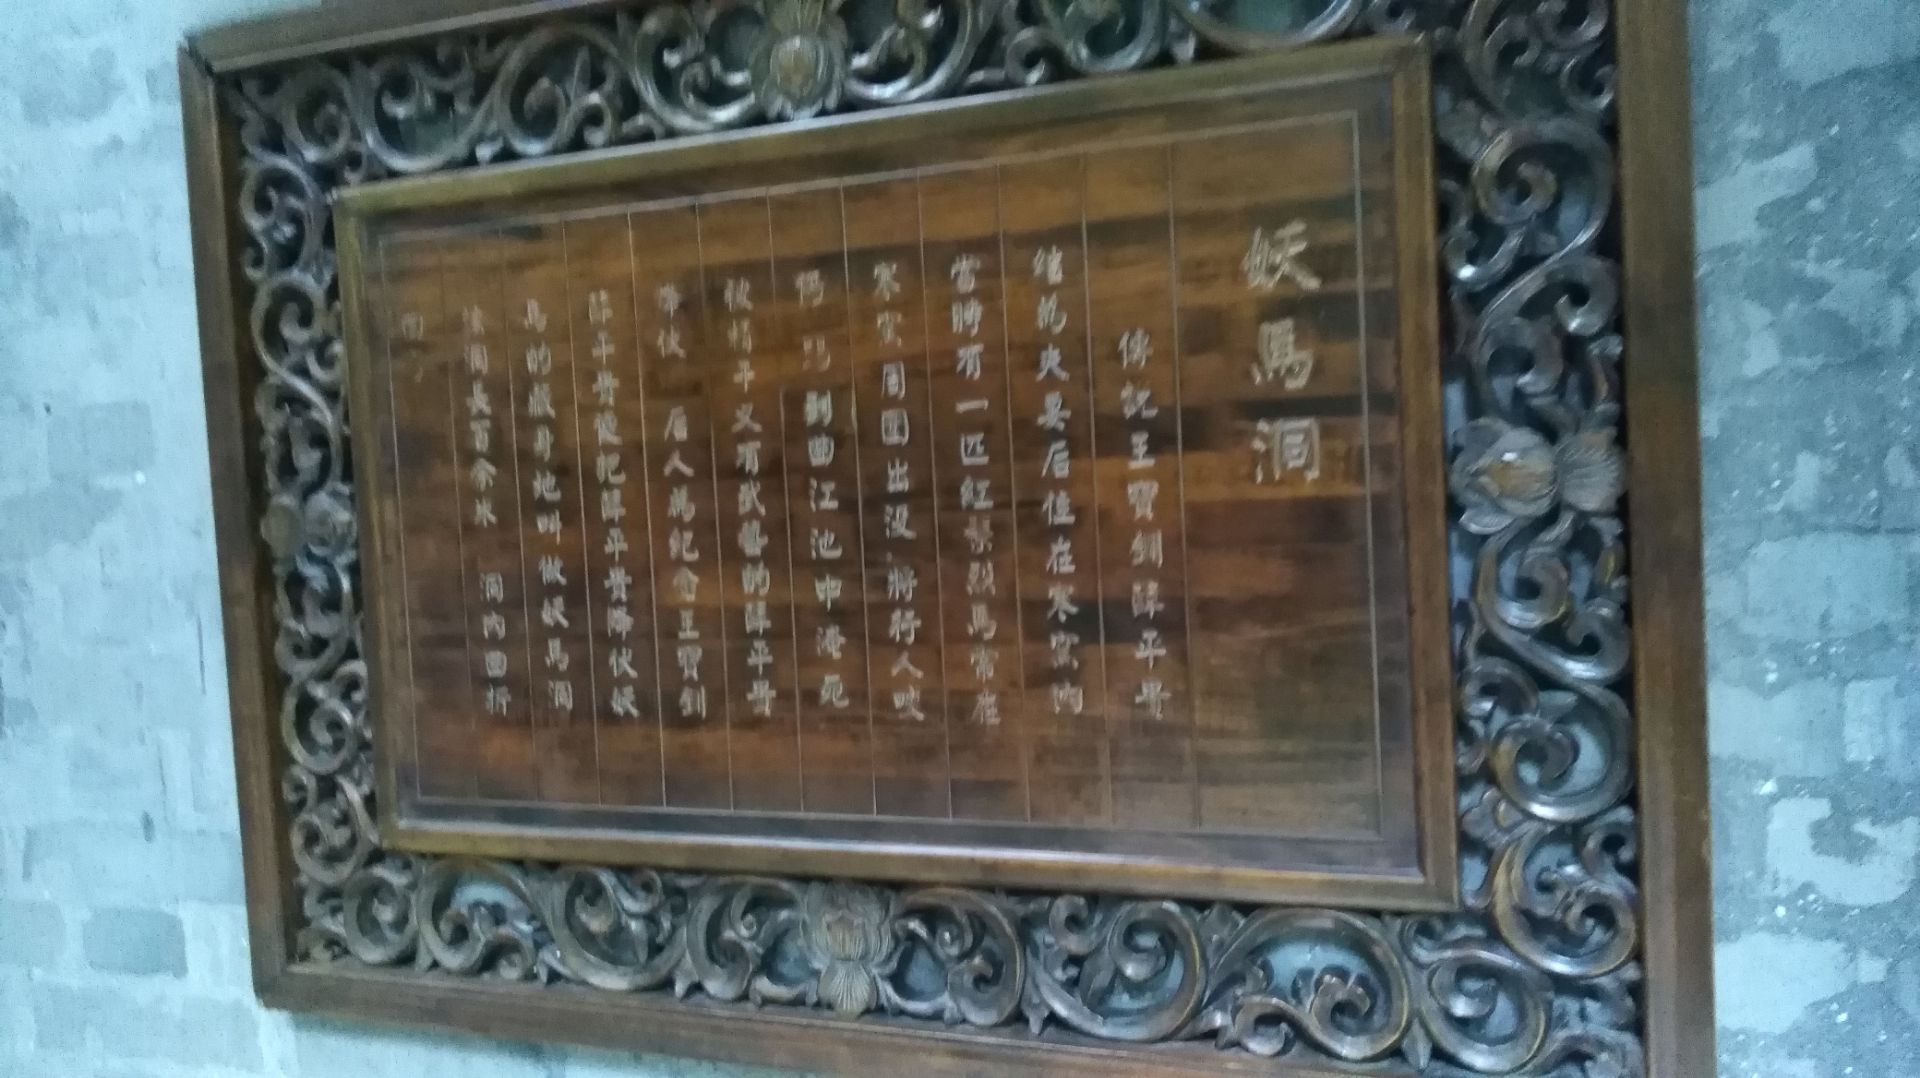 妖馬洞
傳説王寶釧薛平貴
結為夫妻后住在寒窯内
當時有一匹紅鬃烈馬常在
寒窯周圍出没 將行人咬
傷 到曲江池中淹死
被 平 又有武藝的薛平貴
降伏 后人為紀念王寶釧
薛平貴便把薛平貴降伏妖
馬的藏身地叫做妖馬洞
該洞長百余米 洞内曲折